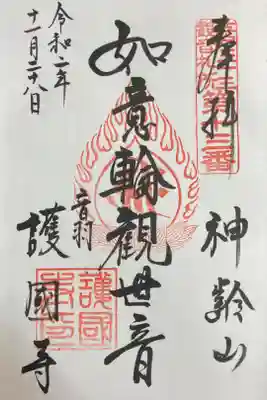 奉拝
神齢山
如意輪觀世音
音羽
護國寺
令和二年
十一月二十八日